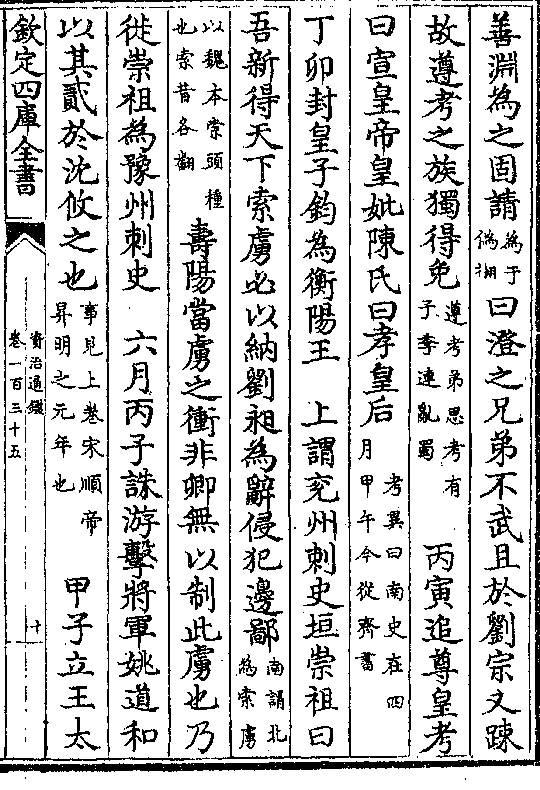 善淵為之固請為于偽翻曰澄之兄弟不武且於劉宗又踈
故遵考之族獨得免遵考弟思考有子季連亂蜀 丙寅追尊皇考
曰宣皇帝皇妣陳氏曰孝皇后考異曰南史在四月甲午今從齊書
丁卯封皇子鈞為衡陽王 上謂兖州刺史垣崇祖曰
吾新得天下索虜必以納劉昶為辭侵犯邊鄙南謂北為索虜
以魏本索頭種也索昔各翻 壽陽當虜之衝非卿無以制此虜也乃
徙崇祖為豫州刺史 六月丙子誅游擊將軍姚道和
以其貳於沈攸之也事見上卷宋順帝昇明之元年也 甲子立王太
欽定四庫全書
資治通鑑
卷一百三十五
十